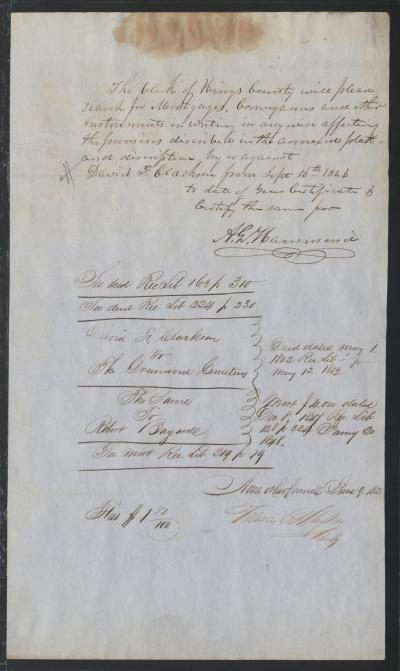 The Clerk of Kings County will please
search for Mortgages, Conveyances and other
instruments in writing in any wise affecting
the premises described in the annexed plat
and discription, by or against
David F. Clarkson from Sept 16th 1846
to date of your Certificate &
Certify the same for
A.G. Hammond
See deed Rec Lib 163 p 310
See deed Rec Lib 224 p 230
David F. Clarkson
to
The Greenwood Cemetery
Deed dated May 1.
1852 Rec Lib - p -
May 12. 1852
The Same
To
Robert Bayard
Mort $ 4.000 dated
Dec 8. 1847 Rec Lib
128 p 324
1848.
See mort Rec Lib 219 p 79
None other found June 9. 1852
Fees $ 1 80/100